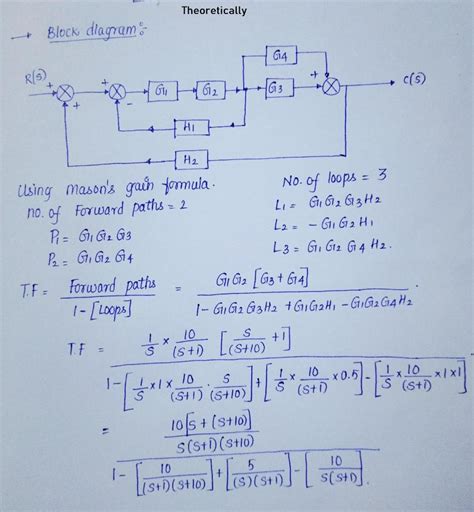 Theoretically
→ Block diagram:-
G4
R(S) + + G1 G2 G3 + C(S)
+ -
H1
H2
Using Mason's gain formula.
No. of loops = 3
no. of Forward paths = 2
L1 = G1G2G3H2
P1 = G1G2G3
L2 = - G1G2H1
P2 = G1G2G4
L3 = G1G2G4H2.
T.F = Forward paths / 1-[Loops] = G1G2[G3+G4] / 1-G1G2G3H2 + G1G2H1 - G1G2G4H2
T.F = 1/S × 10/(S+1) [S/(S+10) + 1]
1-[1/S × 1 × 10/(S+1) . S/(S+10)] + [1/S × 10/(S+1) × 0.5] - [1/S × 10/(S+1) × 1 × 1]
= 10[S + (S+10)] / S(S+1)(S+10)
1 - [10/(S+1)(S+10)] + [5/(S)(S+1)] - [10/S(S+1)].